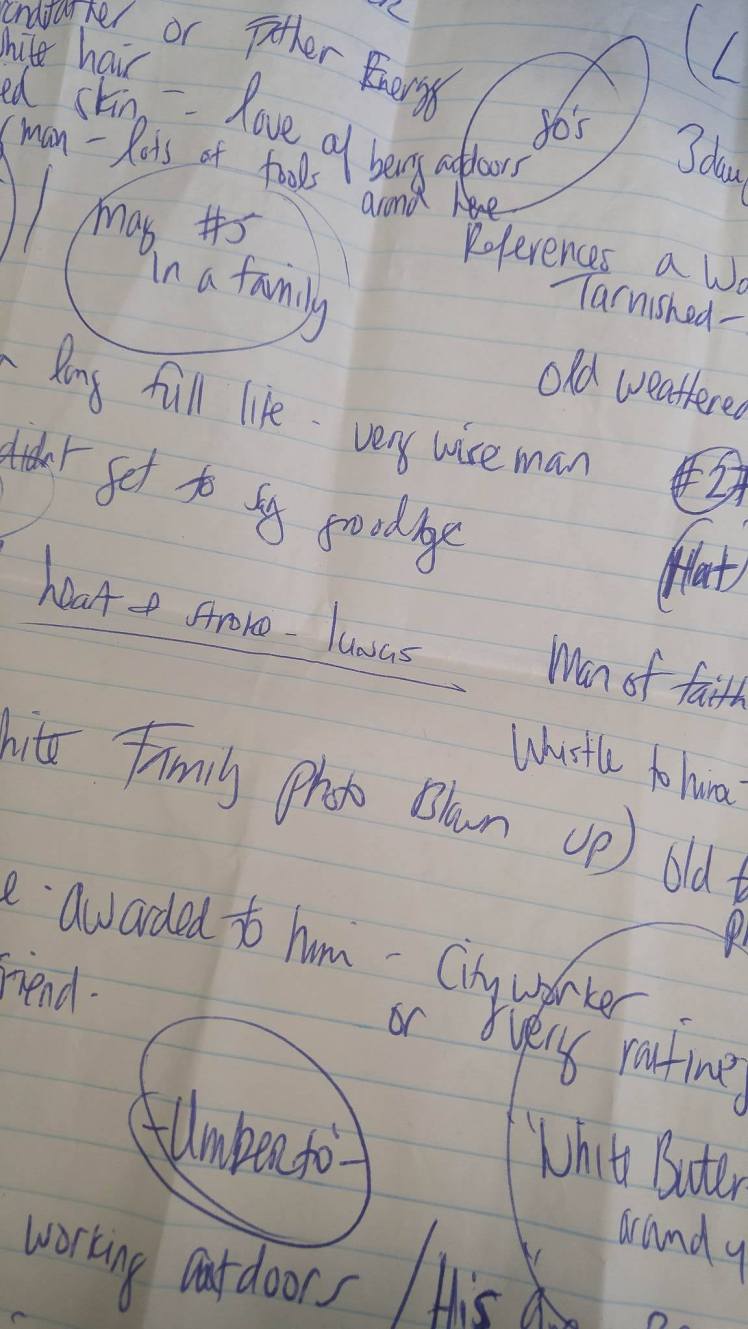 or Father Energy
white hair
skin - love of being outdoors
man - lots of tools around here
80's
(L
3
May #5
in a family
References a
Tarnished -
long full life - very wise man
old weathered
didn't get to say goodbye
#2
(Hat)
heart & stroke - lungs
Man of faith
Whistle to him -
Family photo Blown up)
old
awarded to him - City worker
or very routine
friend.
-Umberto-
'White
around
working outdoors / His